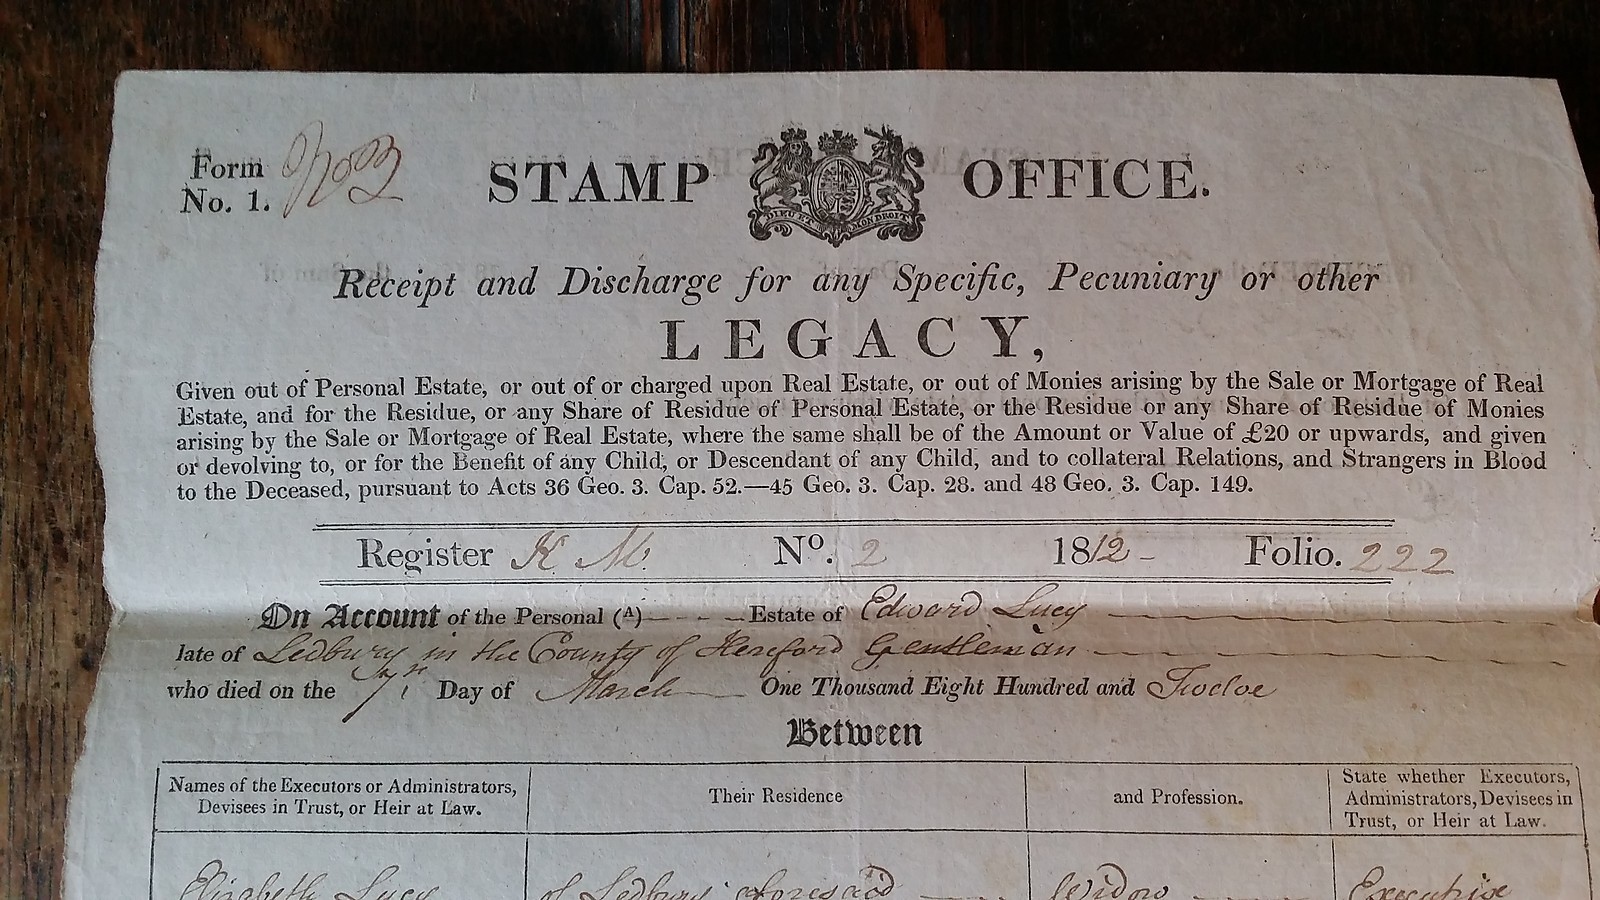 Form
No. 1.
No 2
STAMP OFFICE.
DIEU ET MON DROIT
Receipt and Discharge for any Specific, Pecuniary or other
LEGACY,
Given out of Personal Estate, or out of or charged upon Real Estate, or out of Monies arising by the Sale or Mortgage of Real
Estate, and for the Residue, or any Share of Residue of Personal Estate, or the Residue or any Share of Residue of Monies
arising by the Sale or Mortgage of Real Estate, where the same shall be of the Amount or Value of £20 or upwards, and given
or devolving to, or for the Benefit of any Child, or Descendant of any Child, and to collateral Relations, and Strangers in Blood
to the Deceased, pursuant to Acts 36 Geo. 3. Cap. 52.—45 Geo. 3. Cap. 28. and 48 Geo. 3. Cap. 149.
Register K M. No. 2 1812 - Folio. 222
On Account of the Personal (A) - - - Estate of Edward Lucy
late of Ledbury in the County of Hereford Gentleman
who died on the 7th Day of March One Thousand Eight Hundred and Twelve
Between
Names of the Executors or Administrators,
Devisees in Trust, or Heir at Law.
Their Residence
and Profession.
State whether Executors,
Administrators, Devisees in
Trust, or Heir at Law.
Elizabeth Lucy of Ledbury aforesaid Widow Executrix